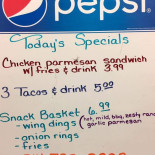 pepsi
Today's Specials
Chicken parmesan sandwich
w/ fries & drink 3.99
3 Tacos & drink 5.00
Snack Basket 6.99
- wing dings (hot, mild, bbq, zesty ranch
garlic parmesan
- onion rings
- fries